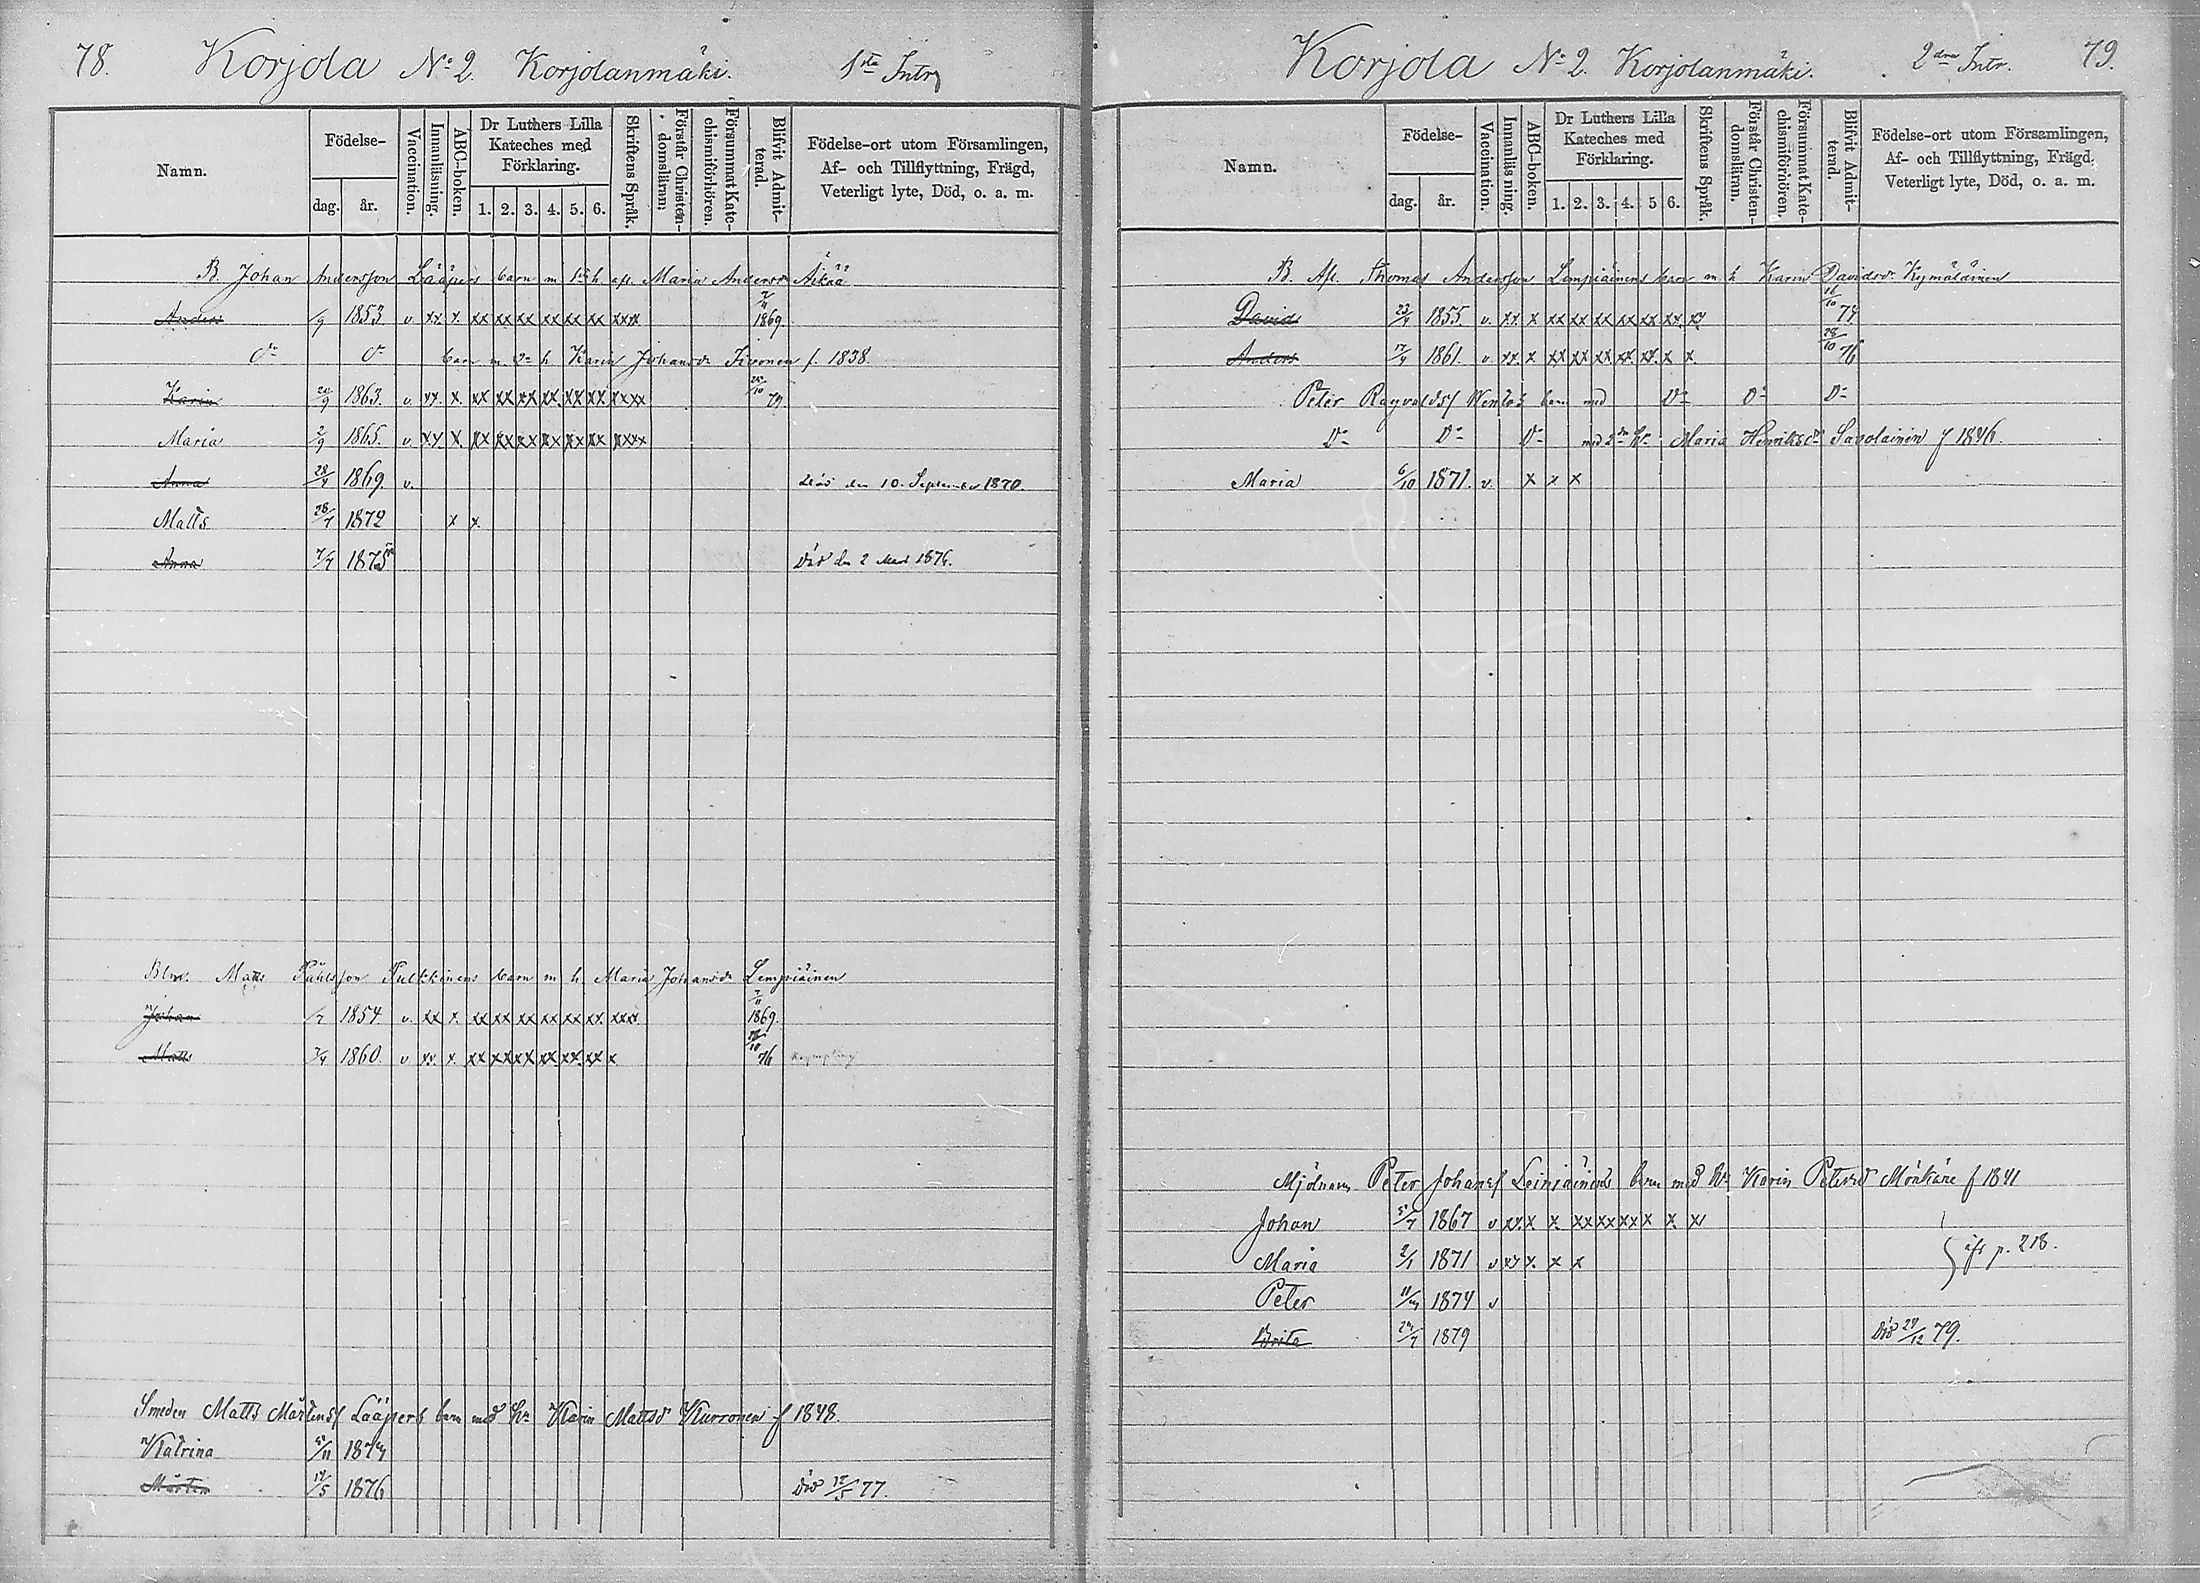 78. Korjola No 2. Korjolanmäki. 1sta Intr
Namn.
Födelse-
dag. år.
Vaccination.
Innanläsning.
ABC-boken.
Dr Luthers Lilla Kateches med Förklaring.
1. 2. 3. 4. 5. 6.
Skriftens Språk.
Förstår Christendomsläran.
Försummat Katechismiförhören.
Blifvit Admitterad.
Födelse-ort utom Församlingen, Af- och Tillflyttning, Frägd, Veterligt lyte, Död, o. a. m.
B. Johan Andersson Lääperi barn m 1sta h afl. Maria Andersdr Äikää
Anders /9 1853 v. xx x. xx xx xx xx xx xx xxx 7/11 1869
Do Do barn m 2a h Karin Johansdr f. 1838.
Karin 9 1863. v. xx. x. xx xx xx xx. xx xx xxxx /10 79
Maria 2/9 1865. v. xx x. xx xx xx xx xx xx xxxx
Anna 28/4 1869. v. död den 10. September 1870.
Matts 28/7 1872 x x.
Anna 7/4 1875 Död den 2 1876.
Matts Påhlsson Pulkkinens barn m h Maria Johansdr Lempiäinen
Johan /2 1854 v. xx x. xx xx xx xx xx xx. xxx. 7/11 1869.
Matts 7/4 1860. v xx. x. xx xx xx xx. xx. xx x. /10 76
Smeden Matts Mårtensf Lääperi barn med hu Karin Mattsd Kurronen f 1848.
Katrina 5/11 187
Mårten 14/5 1876 Död 12/5 77.
Korjola No 2. Korjolanmäki. 2dra Intr. 79.
Namn.
Födelse-
dag. år.
Vaccination.
Innanläsning.
ABC-boken.
Dr Luthers Lilla Kateches med Förklaring.
1. 2. 3. 4. 5 6.
Skriftens Språk.
Förstår Christendomsläran.
Försummat Katechismiförhören.
Blifvit Admitterad.
Födelse-ort utom Församlingen, Af- och Tillflyttning, Frägd, Veterligt lyte, Död, o. a. m.
B. Afl. Thomas Andersson Lempiäinens barn m h Karin Davidsdr Kymäläinen
David 23/4 1855. v. xx. x xx xx xx xx xx xx. xx 16/10 74
Anders 17/4 1861. v xx. x xx xx xx xx. xx. x x. 28/10 76
Peter barn med Do Do Do
Do Do Do med 2dra hu Maria Henriksdr Savolainen f 1846.
Maria 6/10 1871. v. x x x
Mjölnaren Peter Johansf Leiniäinens barn med hu Karin Petersd Mönkäre f 1841
Johan 5/7 1867 v xx. x x. xx xx xx x x. xx
Maria 2/1 1871 v xx x. x x } p. 218.
Peter 11/ 1874 v
Brita 2/7 1879 Död 24/12 79.